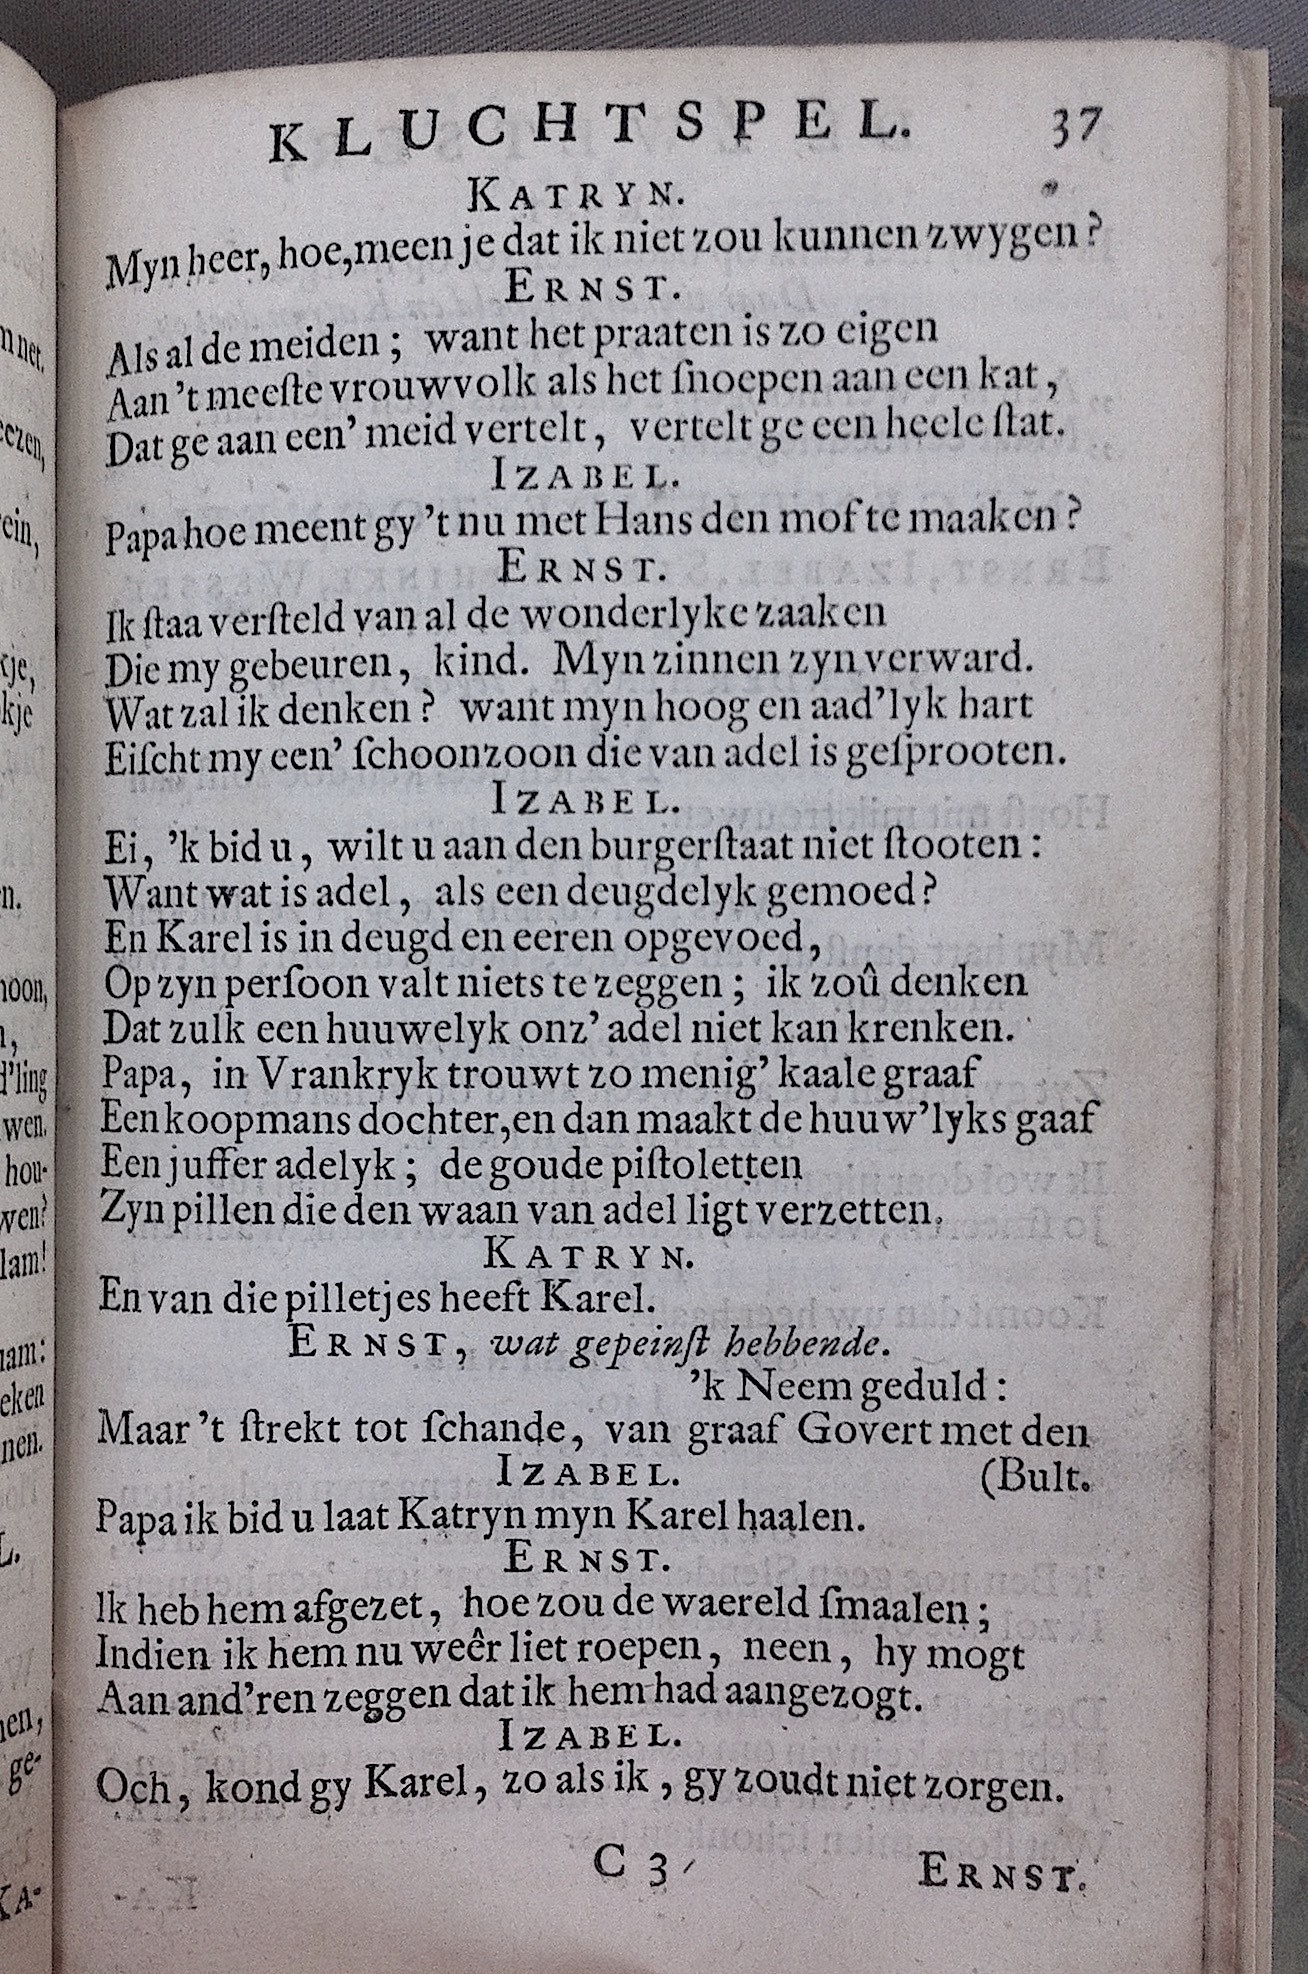 KLUCHTSPEL. 37
KATRYN.
Myn heer, hoe, meen je dat ik niet zou kunnen zwygen?
ERNST.
Als al de meiden; want het praaten is zo eigen
Aan 't meeſte vrouwvolk als het ſnoepen aan een kat,
Dat ge aan een' meid vertelt, vertelt ge een heele ſtat.
IZABEL.
Papa hoe meent gy 't nu met Hans den mof te maaken?
ERNST.
Ik ſtaa verſteld van al de wonderlyke zaaken
Die my gebeuren, kind. Myn zinnen zyn verward.
Wat zal ik denken? want myn hoog en aad'lyk hart
Eiſcht my een' ſchoonzoon die van adel is geſprooten.
IZABEL.
Ei, 'k bid u, wilt u aan den burgerſtaat niet ſtooten:
Want wat is adel, als een deugdelyk gemoed?
En Karel is in deugd en eeren opgevoed,
Op zyn perſoon valt niets te zeggen; ik zoû denken
Dat zulk een huuwelyk onz' adel niet kan krenken.
Papa, in Vrankryk trouwt zo menig' kaale graaf
Een koopmans dochter, en dan maakt de huuw'lyks gaaf
Een juffer adelyk; de goude piſtoletten
Zyn pillen die den waan van adel ligt verzetten.
KATRYN.
En van die pilletjes heeft Karel.
ERNST, wat gepeinſt hebbende.
'k Neem geduld:
Maar 't ſtrekt tot ſchande, van graaf Govert met den
IZABEL. (Bult.
Papa ik bid u laat Katryn myn Karel haalen.
ERNST.
Ik heb hem afgezet, hoe zou de waereld ſmaalen;
Indien ik hem nu weêr liet roepen, neen, hy mogt
Aan and'ren zeggen dat ik hem had aangezogt.
IZABEL.
Och, kond gy Karel, zo als ik, gy zoudt niet zorgen.
C 3 ERNST.